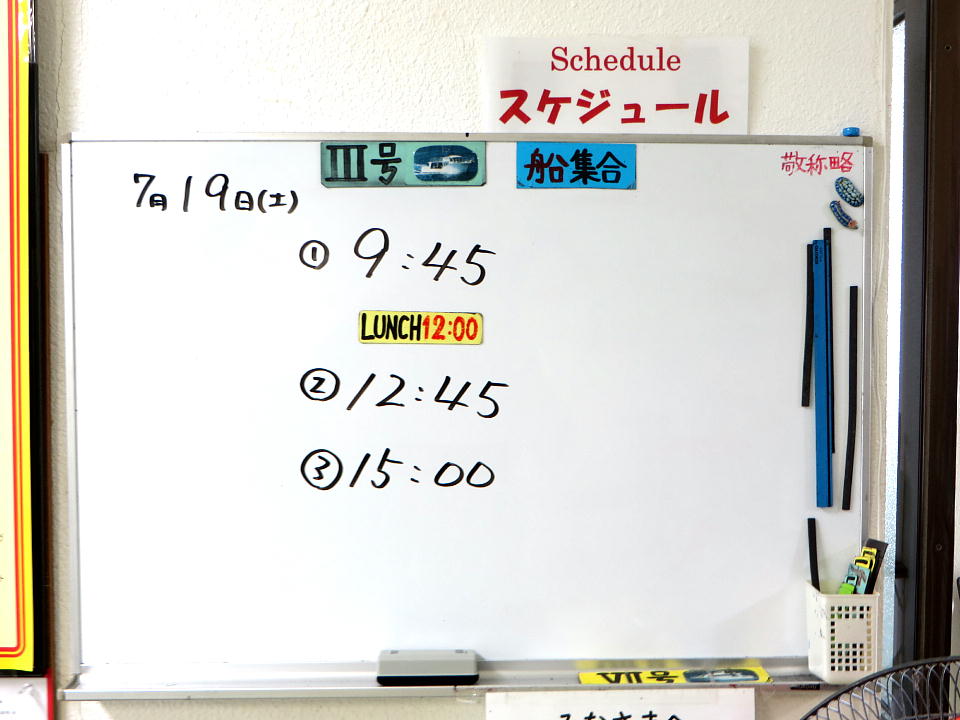 Schedule
スケジュール
III号 船集合 敬称略
7月19日(土)
① 9:45
LUNCH12:00
② 12:45
③ 15:00